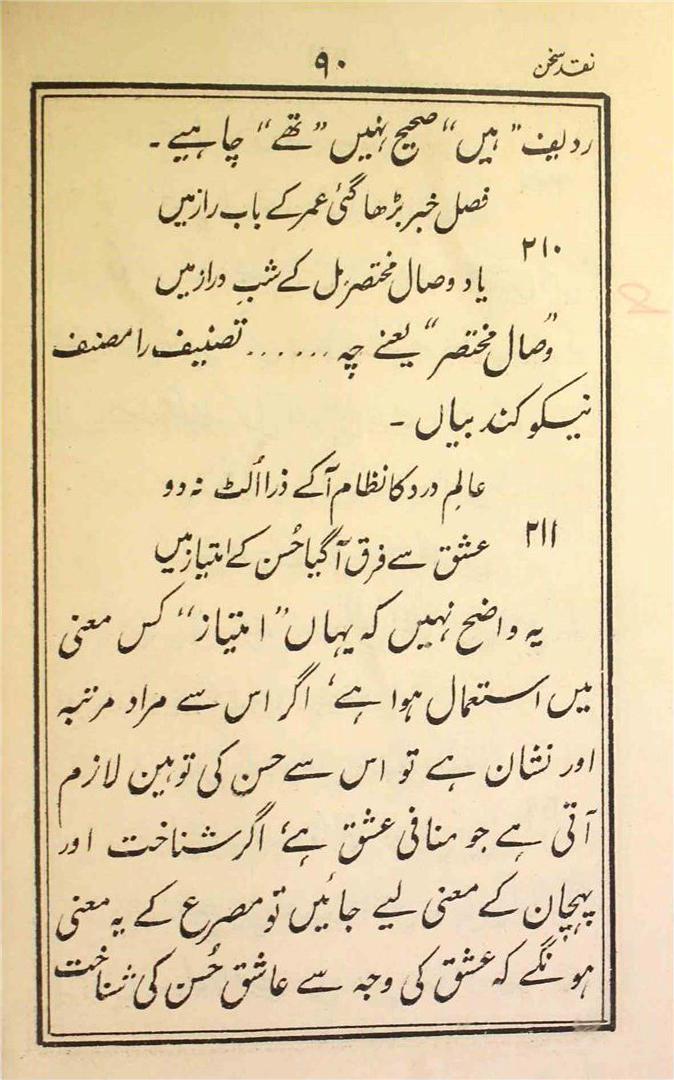 نقد سخن
۹۰
ردیف "ہیں" صحیح نہیں "تھے" چاہیے۔
فصل خبر بڑھا گئی عمر کے باب راز میں
۲۱۰
یاد وصال مختصر مل کے شبِ دراز میں
"وصال مختصر" یعنے چہ ...... تصنیف را مصنف
نیکو کند بیاں۔
عالمِ درد کا نظام آ کے ذرا اُلٹ نہ دو
۲۱۱
عشق سے فرق آ گیا حُسن کے امتیاز میں
یہ واضح نہیں کہ یہاں "امتیاز" کس معنی
میں استعمال ہوا ہے، اگر اس سے مراد مرتبہ
اور نشان ہے تو اس سے حسن کی توہین لازم
آتی ہے جو منافی عشق ہے، اگر شناخت اور
پہچان کے معنی لیے جائیں تو مصرع کے یہ معنی
ہونگے کہ عشق کی وجہ سے عاشق حُسن کی شناخت